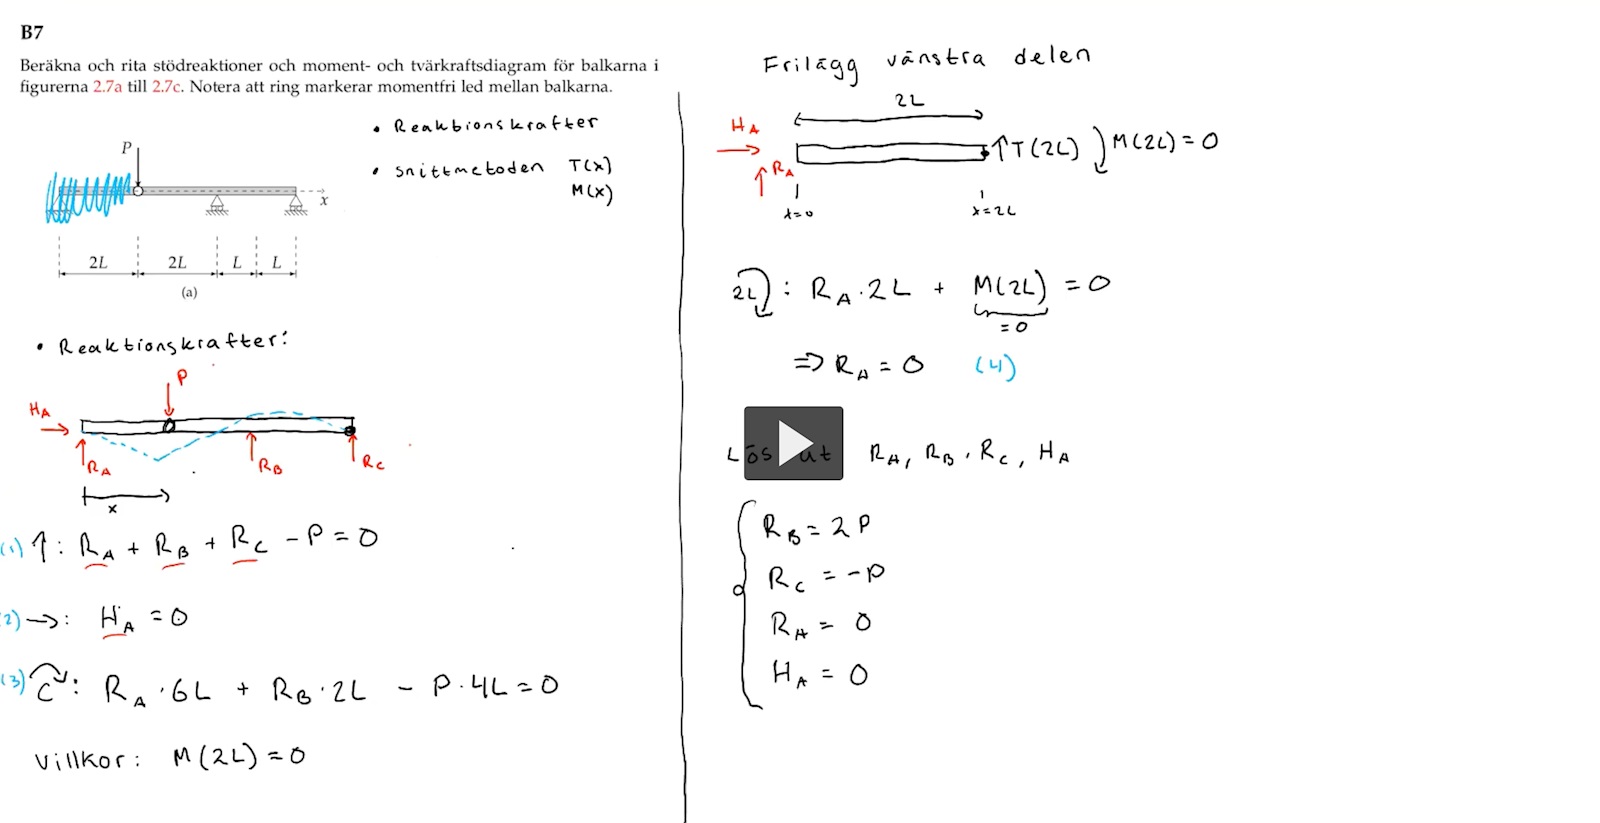 B7
Beräkna och rita stödreaktioner och moment- och tvärkraftsdiagram för balkarna i
figurerna 2.7a till 2.7c. Notera att ring markerar momentfri led mellan balkarna.
• Reaktionskrafter
• Snittmetoden T(x)
M(x)
P
x
2L 2L L L
(a)
• Reaktionskrafter:
P
HA
RA RB RC
x
(1) ↑: RA + RB + RC - P = 0
(2) →: HA = 0
(3) C: RA · 6L + RB · 2L - P · 4L = 0
Villkor: M(2L) = 0
Frilägg vänstra delen
2L
HA
RA
↑T(2L) M(2L) = 0
x=0 x=2L
2L: RA · 2L + M(2L) = 0
= 0
⇒ RA = 0 (4)
Lös ut RA, RB, RC, HA
RB = 2P
RC = -P
RA = 0
HA = 0